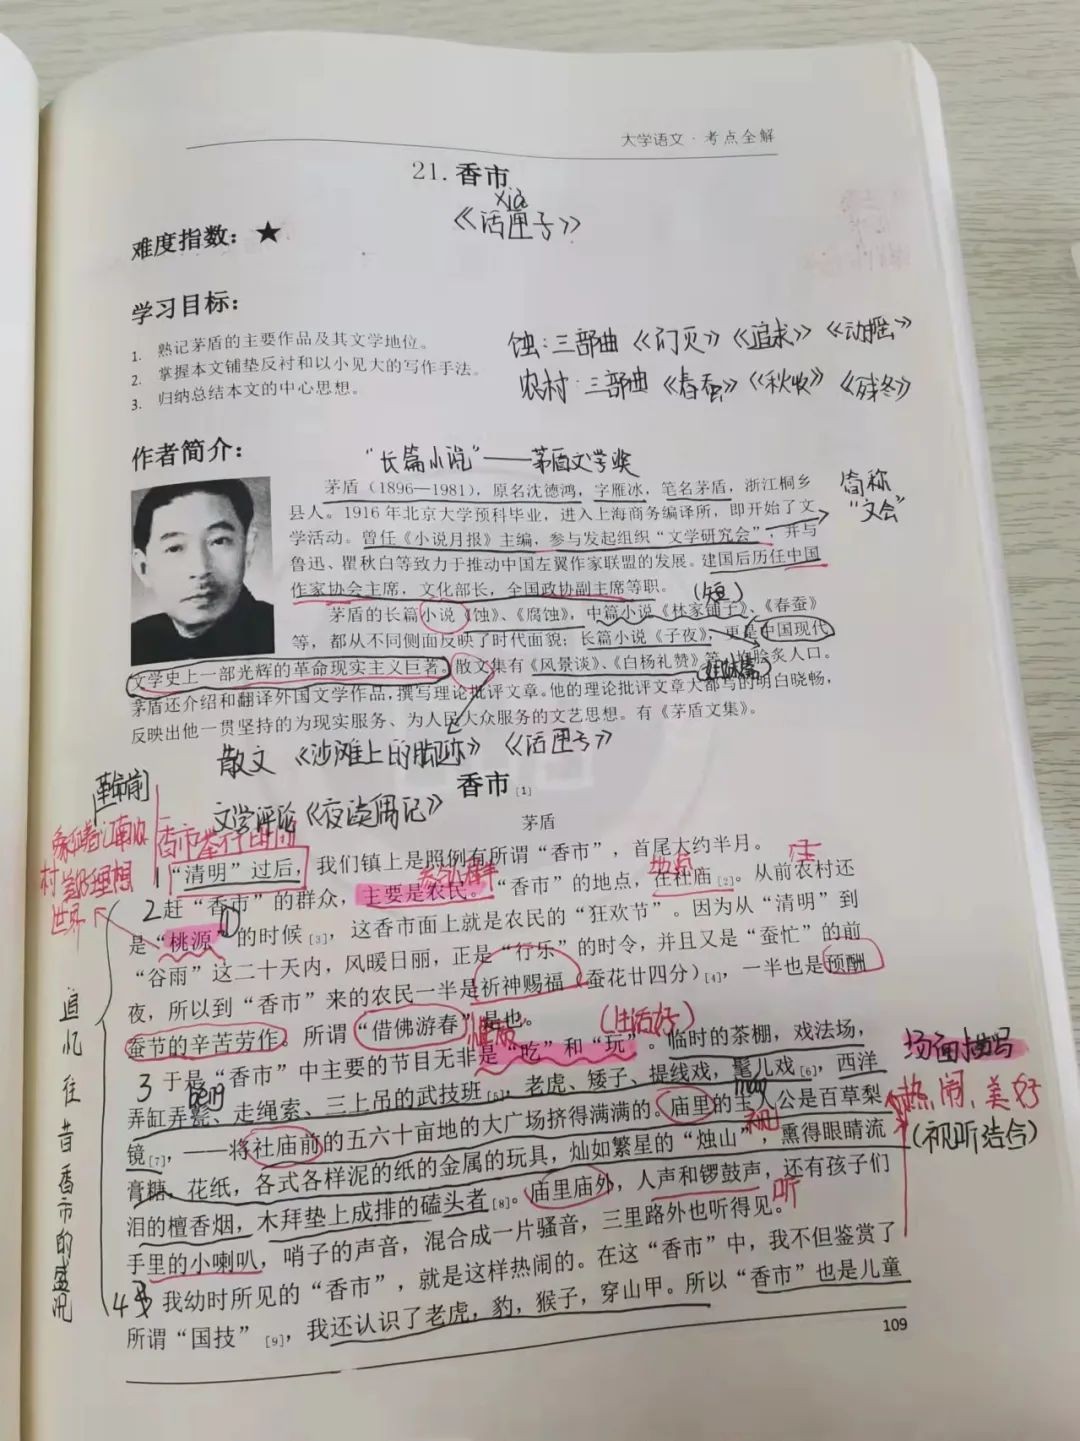 大学语文·考点全解
21. 香市
xiá
《话匣子》
难度指数：★
学习目标：
1. 熟记茅盾的主要作品及其文学地位。
2. 掌握本文铺垫反衬和以小见大的写作手法。
3. 归纳总结本文的中心思想。
蚀：三部曲《幻灭》《追求》《动摇》
农村：三部曲《春蚕》《秋收》《残冬》
作者简介：
"长篇小说"——茅盾文学奖
茅盾（1896—1981），原名沈德鸿，字雁冰，笔名茅盾，浙江桐乡
县人。1916年北京大学预科毕业，进入上海商务编译所，即开始了文
学活动。曾任《小说月报》主编，参与发起组织"文学研究会"，并与
鲁迅、瞿秋白等致力于推动中国左翼作家联盟的发展。建国后历任中国
作家协会主席，文化部长，全国政协副主席等职。
简称
"文会"
（短）
茅盾的长篇小说《蚀》、《腐蚀》，中篇小说《林家铺子》、《春蚕》
等，都从不同侧面反映了时代面貌；长篇小说《子夜》，更是中国现代
文学史上一部光辉的革命现实主义巨著。散文集有《风景谈》、《白杨礼赞》等，均脍炙人口。
（姐妹篇）
茅盾还介绍和翻译外国文学作品，撰写理论批评文章。他的理论批评文章大都写的明白晓畅，
反映出他一贯坚持的为现实服务、为人民大众服务的文艺思想。有《茅盾文集》。
散文《沙滩上的脚迹》《话匣子》
香市[1]
文学评论《夜读偶记》
茅盾
革命前
象征着江南农
村美好理想
世界
1 "清明"过后，我们镇上是照例有所谓"香市"，首尾大约半月。
地点
2 赶"香市"的群众，主要是农民。"香市"的地点，在社庙[2]。从前农村还
是"桃源"的时候[3]，这香市面上就是农民的"狂欢节"。因为从"清明"到
"谷雨"这二十天内，风暖日丽，正是"行乐"的时令，并且又是"蚕忙"的前
夜，所以到"香市"来的农民一半是祈神赐福（蚕花廿四分）[4]，一半也是预酬
蚕节的辛苦劳作。所谓"借佛游春"是也。
（生活好）
3 于是"香市"中主要的节目无非是"吃"和"玩"。临时的茶棚，戏法场，
弄缸弄甏、走绳索、三上吊的武技班[5]，老虎、矮子、提线戏，髦儿戏[6]，西洋
镜[7]，——将社庙前的五六十亩地的大广场挤得满满的。庙里的主人公是百草梨
膏糖，花纸，各式各样泥的纸的金属的玩具，灿如繁星的"烛山"，熏得眼睛流
泪的檀香烟，木拜垫上成排的磕头者[8]。庙里庙外，人声和锣鼓声，还有孩子们
手里的小喇叭，哨子的声音，混合成一片骚音，三里路外也听得见。
听
场面描写
热闹、美好
（视听结合）
4 我幼时所见的"香市"，就是这样热闹的。在这"香市"中，我不但鉴赏了
所谓"国技"[9]，我还认识了老虎，豹，猴子，穿山甲。所以"香市"也是儿童
追忆往昔香市的盛况
109